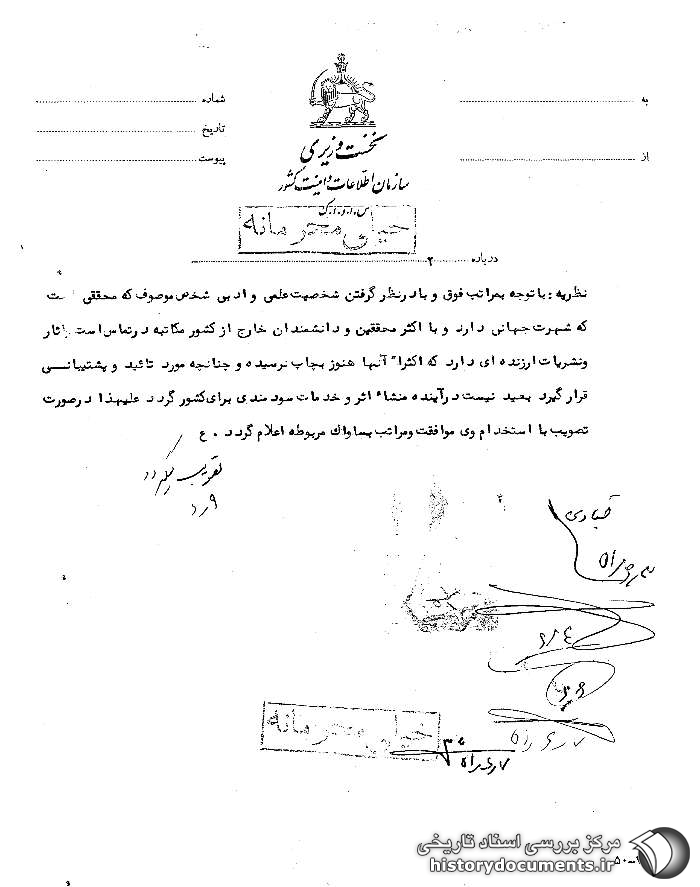 به
شماره
تاریخ
از
پیوست
نخست وزیری
سازمان اطلاعات و امنیت کشور
س.ا.و.ا.ک
خیلی محرمانه
درباره ۲
نظریه : با توجه بمراتب فوق و با در نظر گرفتن شخصیت علمی و ادبی شخص موصوف که محققی است
که شهرت جهانی دارد و با اکثر محققین و دانشمندان خارج از کشور مکاتبه در تماس است آثار
و نشریات ارزنده ای دارد که اکثراً آنها هنوز بچاپ نرسیده و چنانچه مورد تائید و پشتیبانی
قرار گیرد بعید نیست در آینده منشاء اثر و خدمات سودمندی برای کشور گردد علیهذا در صورت
تصویب با استخدام وی موافقت و مراتب بساواک مربوطه اعلام گردد . ع
خیلی محرمانه
مرکز بررسی اسناد تاریخی
historydocuments.ir